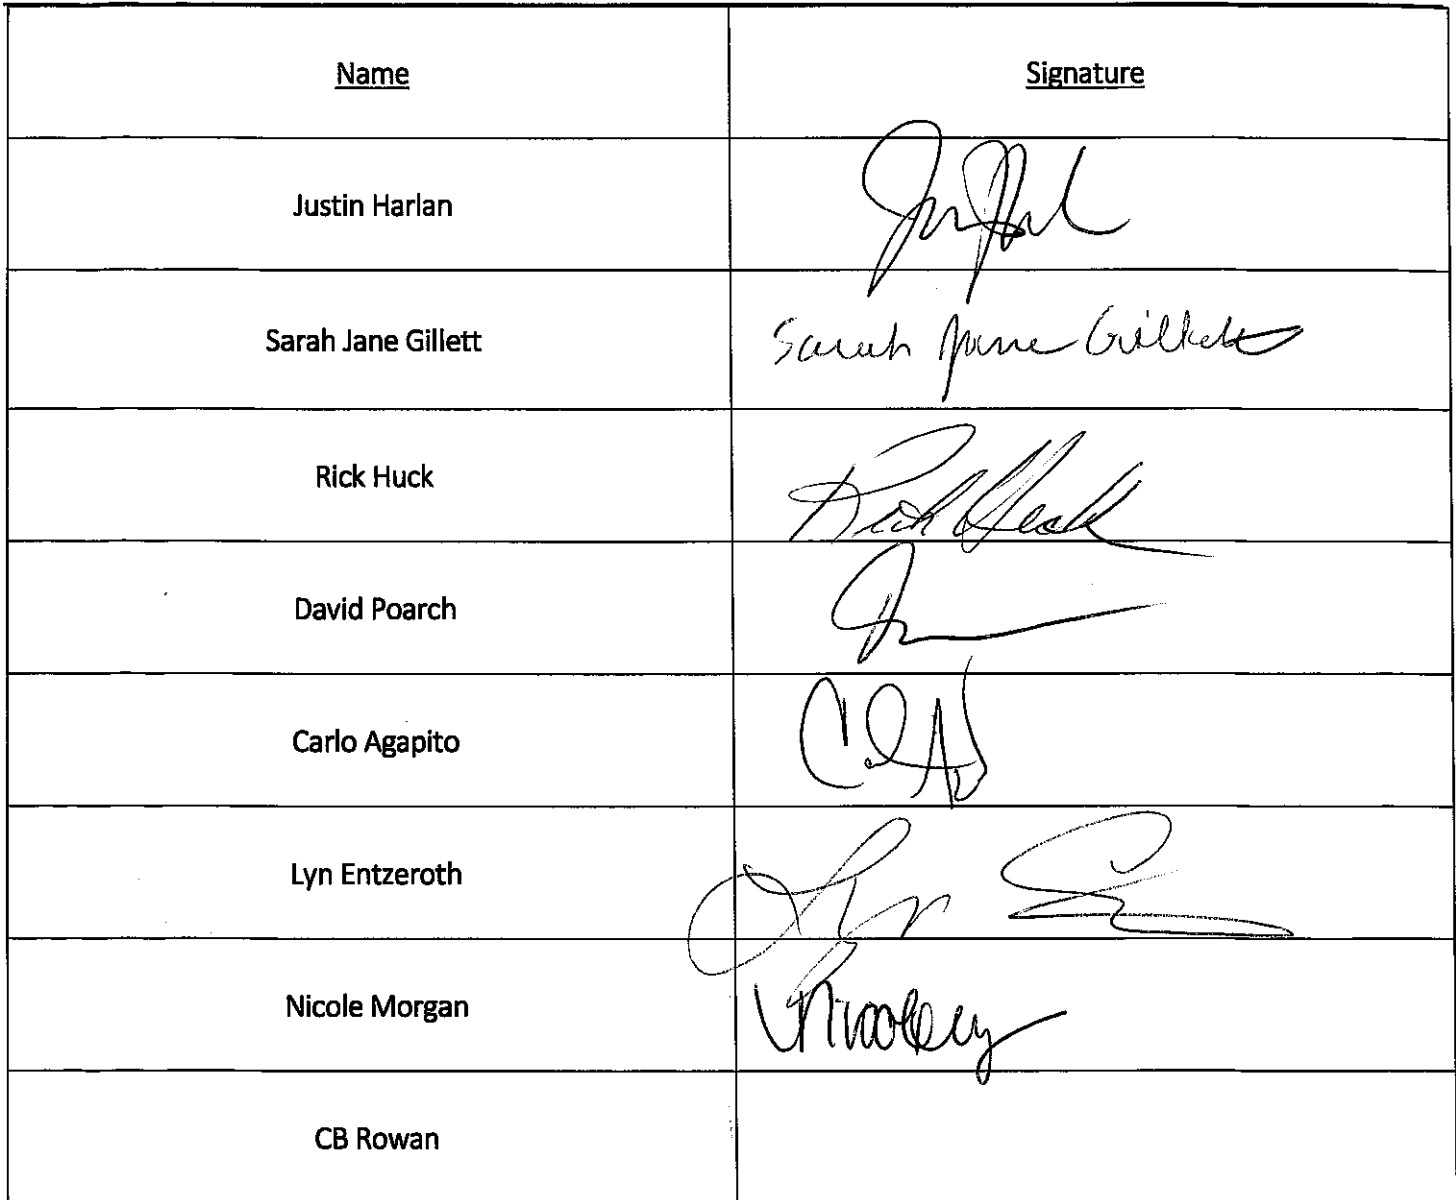 Name Signature
Justin Harlan
Sarah Jane Gillett Sarah Jane Gillett
Rick Huck Rick Huck
David Poarch
Carlo Agapito
Lyn Entzeroth
Nicole Morgan
CB Rowan